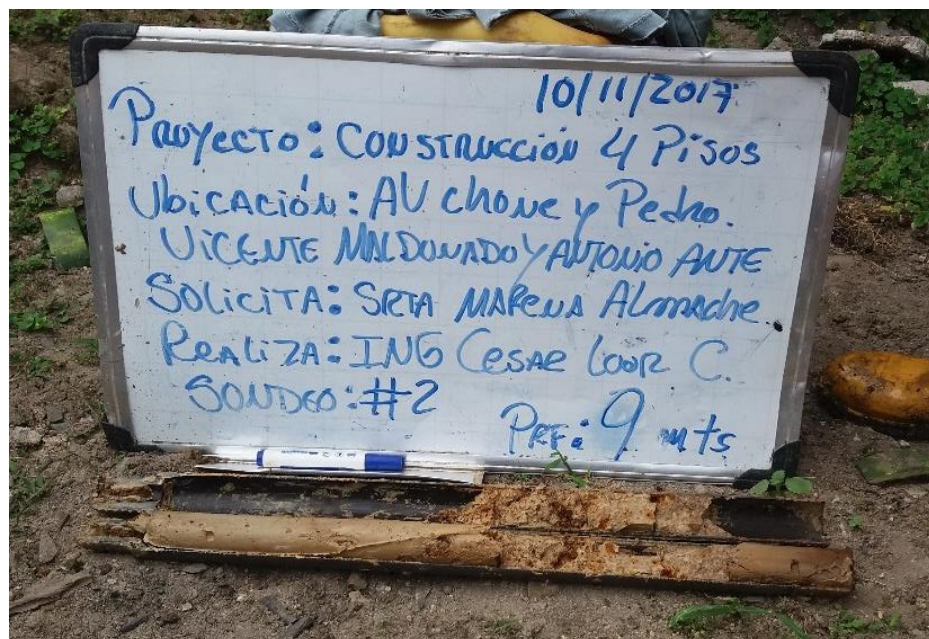 10/11/2017
Proyecto: Construcción 4 Pisos
Ubicación: AV Chone y Pedro.
Vicente Maldonado y Antonio Ante
Solicita: Srta Marena Almache.
Realiza: ING Cesar Loor C.
Sondeo: #2
Prf: 9 mts